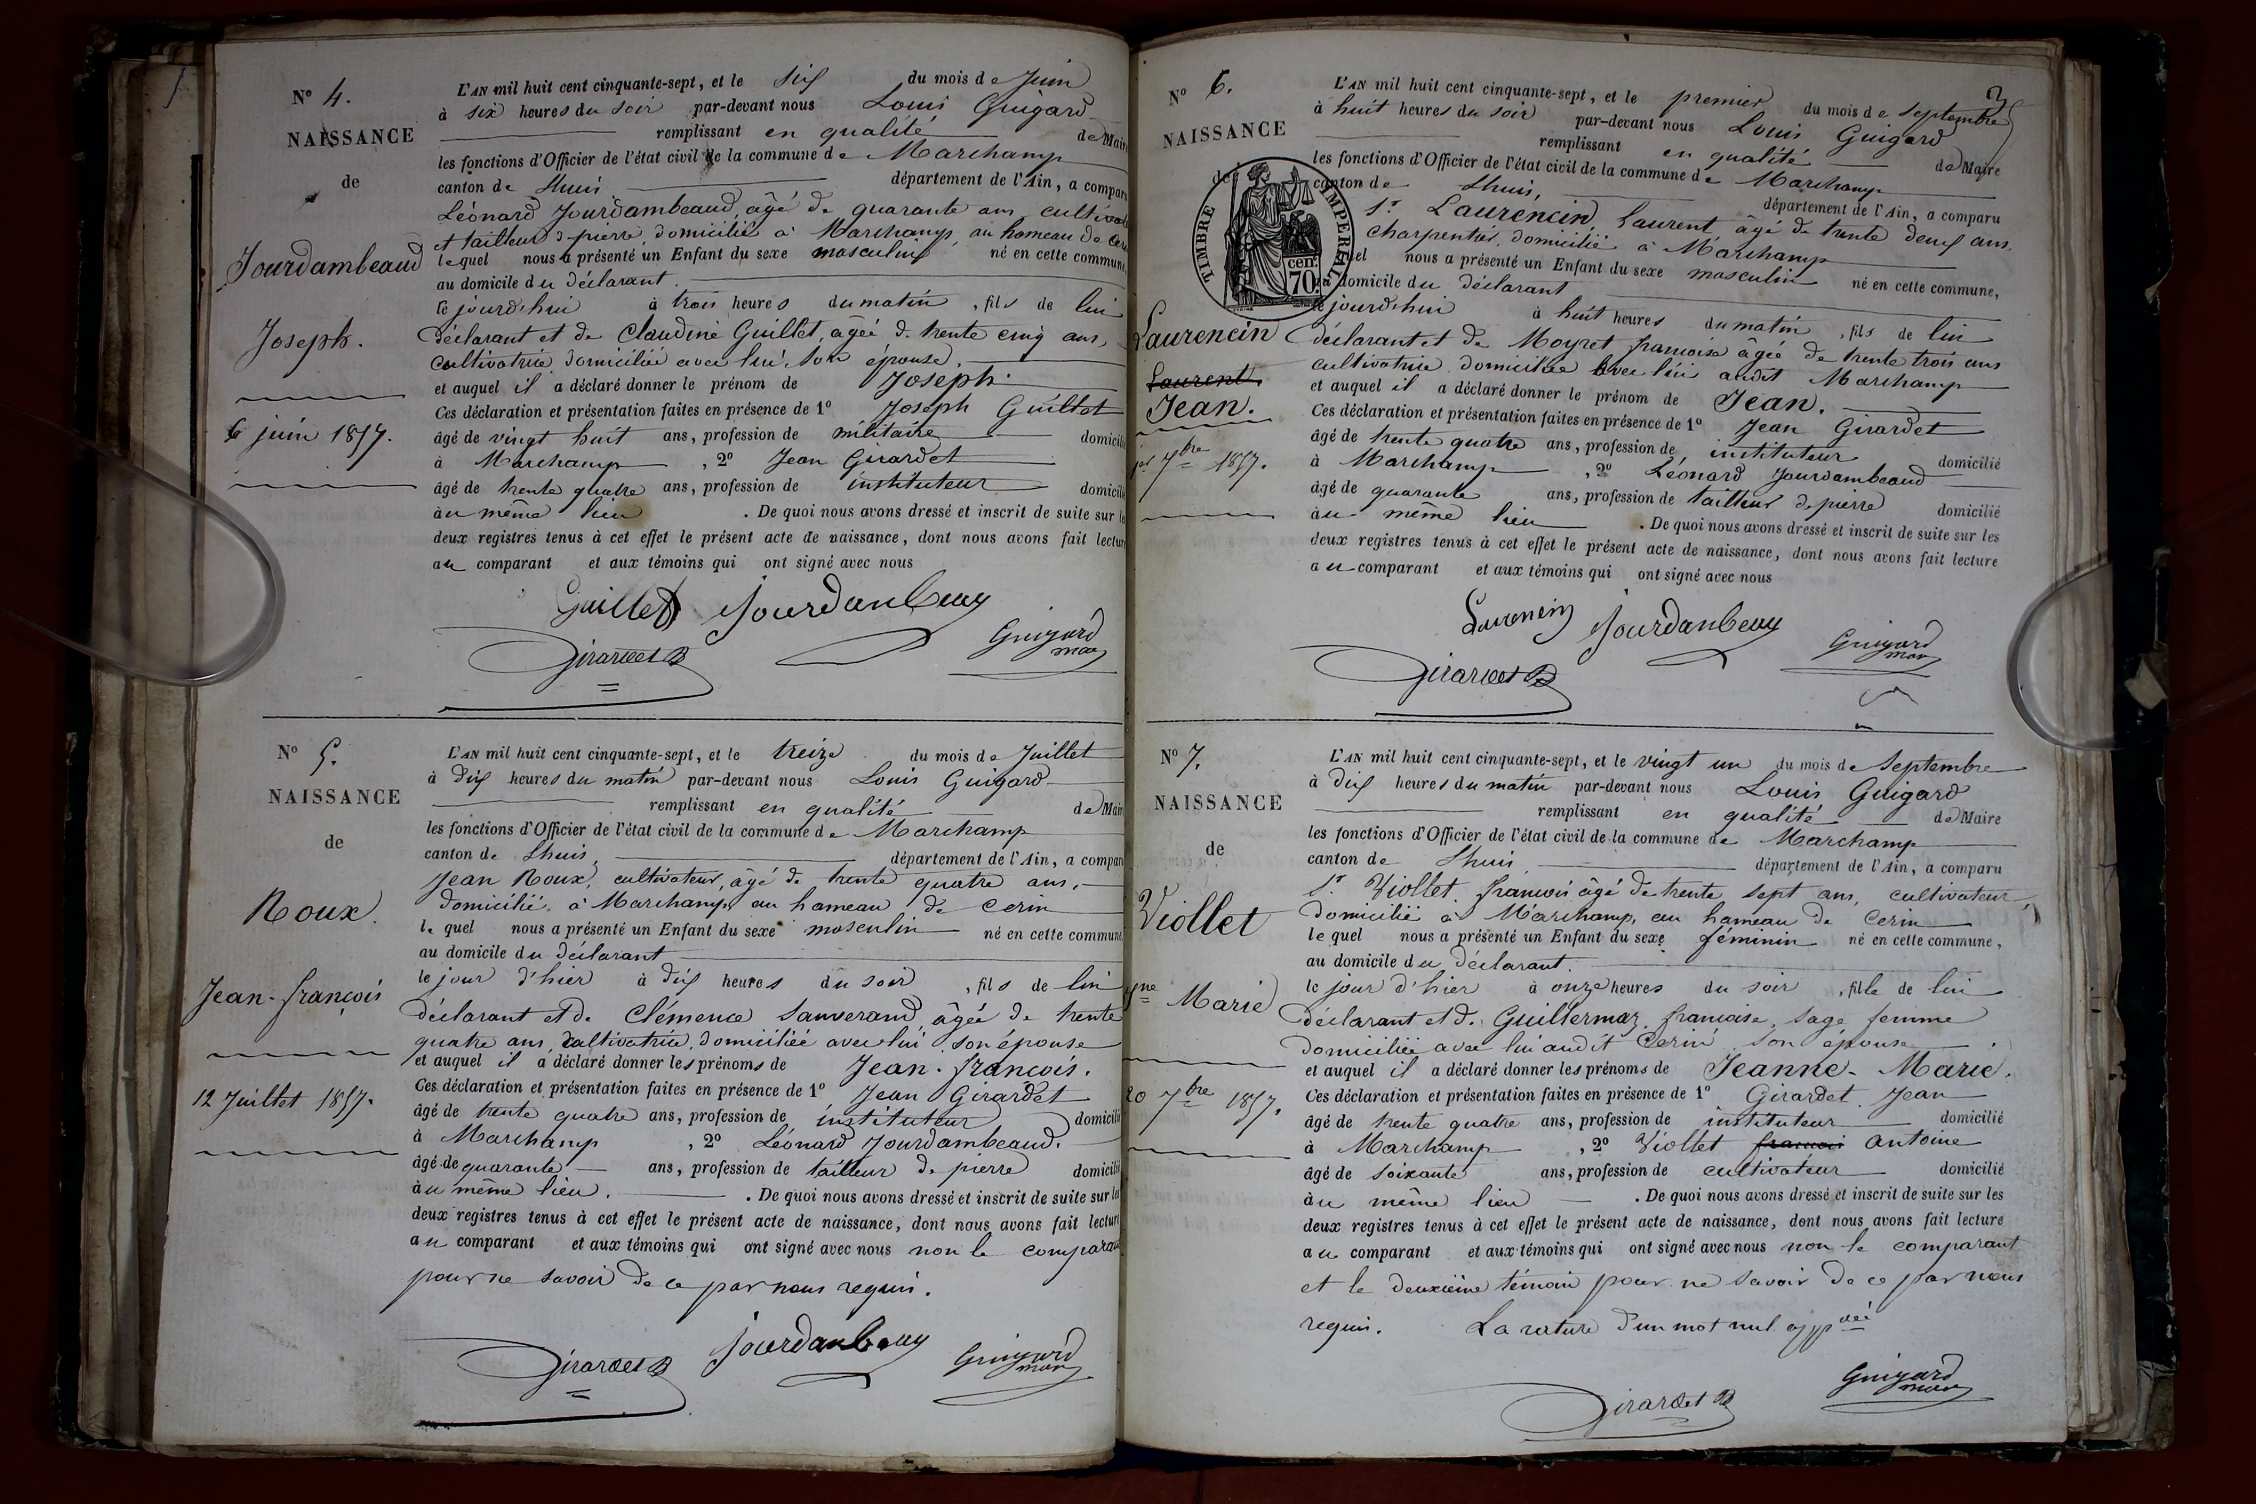 N° 4.
NAISSANCE
de
Jourdambeaud
Joseph.
6 juin 1857.
L'AN mil huit cent cinquante-sept, et le six du mois de Juin
à six heures du soir par-devant nous Louis Guigard
remplissant en qualité de Mair
les fonctions d'Officier de l'état civil de la commune de Marchamp
canton de Lhuis département de l'Ain, a compar
Léonard Jourdambeaud, âgé de quarante ans, cultivat
et tailleur de pierre, domicilié à Marchamp, au hameau de Ceri
lequel nous a présenté un Enfant du sexe masculin né en cette commune
au domicile du déclarant
ce jourd'hui à trois heures du matin, fils de lui
déclarant et de Claudine Guillet, âgée de trente cinq ans,
cultivatrice domiciliée avec lui, son épouse,
et auquel il a déclaré donner le prénom de Joseph.
Ces déclaration et présentation faites en présence de 1° Joseph Guillet
âgé de vingt huit ans, profession de militaire domicili
à Marchamp, 2° Jean Girardet
âgé de trente quatre ans, profession de instituteur domicili
au même lieu. De quoi nous avons dressé et inscrit de suite sur le
deux registres tenus à cet effet le présent acte de naissance, dont nous avons fait lectur
au comparant et aux témoins qui ont signé avec nous
Guillet Jourdanbeau
Girardet Guigard
maire
N° 5.
NAISSANCE
de
Roux.
Jean-françois
12 Juillet 1857.
L'AN mil huit cent cinquante-sept, et le treize du mois de Juillet
à dix heures du matin par-devant nous Louis Guigard
remplissant en qualité de Mair
les fonctions d'Officier de l'état civil de la commune de Marchamp
canton de Lhuis, département de l'Ain, a compar
Jean Roux, cultivateur, âgé de trente quatre ans,
domicilié à Marchamp au hameau de Cerin
lequel nous a présenté un Enfant du sexe masculin né en cette commune
au domicile du déclarant
le jour d'hier à dix heures du soir, fils de lui
déclarant et de Clémence Sauverand, âgée de trente
quatre ans, cultivatrice, domiciliée avec lui son épouse
et auquel il a déclaré donner les prénoms de Jean-françois.
Ces déclaration et présentation faites en présence de 1° Jean Girardet
âgé de trente quatre ans, profession de instituteur domicili
à Marchamp, 2° Léonard Jourdambeaud.
âgé de quarante ans, profession de tailleur de pierre domicili
au même lieu. De quoi nous avons dressé et inscrit de suite sur les
deux registres tenus à cet effet le présent acte de naissance, dont nous avons fait lecture
au comparant et aux témoins qui ont signé avec nous non le comparant
pour ne savoir de ce par nous requis.
Girardet Jourdanbeau Guigard
maire
3
N° 6.
NAISSANCE
de
Laurencin
Laurent.
Jean.
1er 7bre 1857.
TIMBRE IMPERIAL
70 cen.
L'AN mil huit cent cinquante-sept, et le premier du mois de septembre
à huit heures du soir par-devant nous Louis Guigard
remplissant en qualité de Maire
les fonctions d'Officier de l'état civil de la commune de Marchamp
canton de Lhuis, département de l'Ain, a comparu
Sr Laurencin, Laurent, âgé de trente deux ans,
charpentier, domicilié à Marchamp
lequel nous a présenté un Enfant du sexe masculin né en cette commune,
au domicile du déclarant
ce jourd'hui à huit heures du matin, fils de lui
déclarant et de Moyret françoise âgée de trente trois ans
cultivatrice domiciliée avec lui audit Marchamp
et auquel il a déclaré donner le prénom de Jean.
Ces déclaration et présentation faites en présence de 1° Jean Girardet
âgé de trente quatre ans, profession de instituteur domicilié
à Marchamp, 2° Léonard Jourdambeaud
âgé de quarante ans, profession de tailleur de pierre domicilié
au même lieu. De quoi nous avons dressé et inscrit de suite sur les
deux registres tenus à cet effet le présent acte de naissance, dont nous avons fait lecture
au comparant et aux témoins qui ont signé avec nous
Laurencin Jourdanbeau Guigard
maire
Girardet
N° 7.
NAISSANCE
de
Viollet
Jne Marie
20 7bre 1857.
L'AN mil huit cent cinquante-sept, et le vingt un du mois de septembre
à dix heures du matin par-devant nous Louis Guigard
remplissant en qualité de Maire
les fonctions d'Officier de l'état civil de la commune de Marchamp
canton de Lhuis département de l'Ain, a comparu
Sr Viollet, françois âgé de trente sept ans, cultivateur
domicilié à Marchamp, au hameau de Cerin
lequel nous a présenté un Enfant du sexe féminin né en cette commune,
au domicile du déclarant.
le jour d'hier à onze heures du soir, fille de lui
déclarant et de Guillermaz, françoise, sage femme
domiciliée avec lui audit Cerin son épouse
et auquel il a déclaré donner les prénoms de Jeanne-Marie.
Ces déclaration et présentation faites en présence de 1° Girardet Jean
âgé de trente quatre ans, profession de instituteur domicilié
à Marchamp, 2° Viollet françois antoine
âgé de soixante ans, profession de cultivateur domicilié
au même lieu. De quoi nous avons dressé et inscrit de suite sur les
deux registres tenus à cet effet le présent acte de naissance, dont nous avons fait lecture
au comparant et aux témoins qui ont signé avec nous non le comparant
et le deuxième témoin pour ne savoir de ce par nous
requis. La rature d'un mot nul appvée
Girardet Guigard
maire